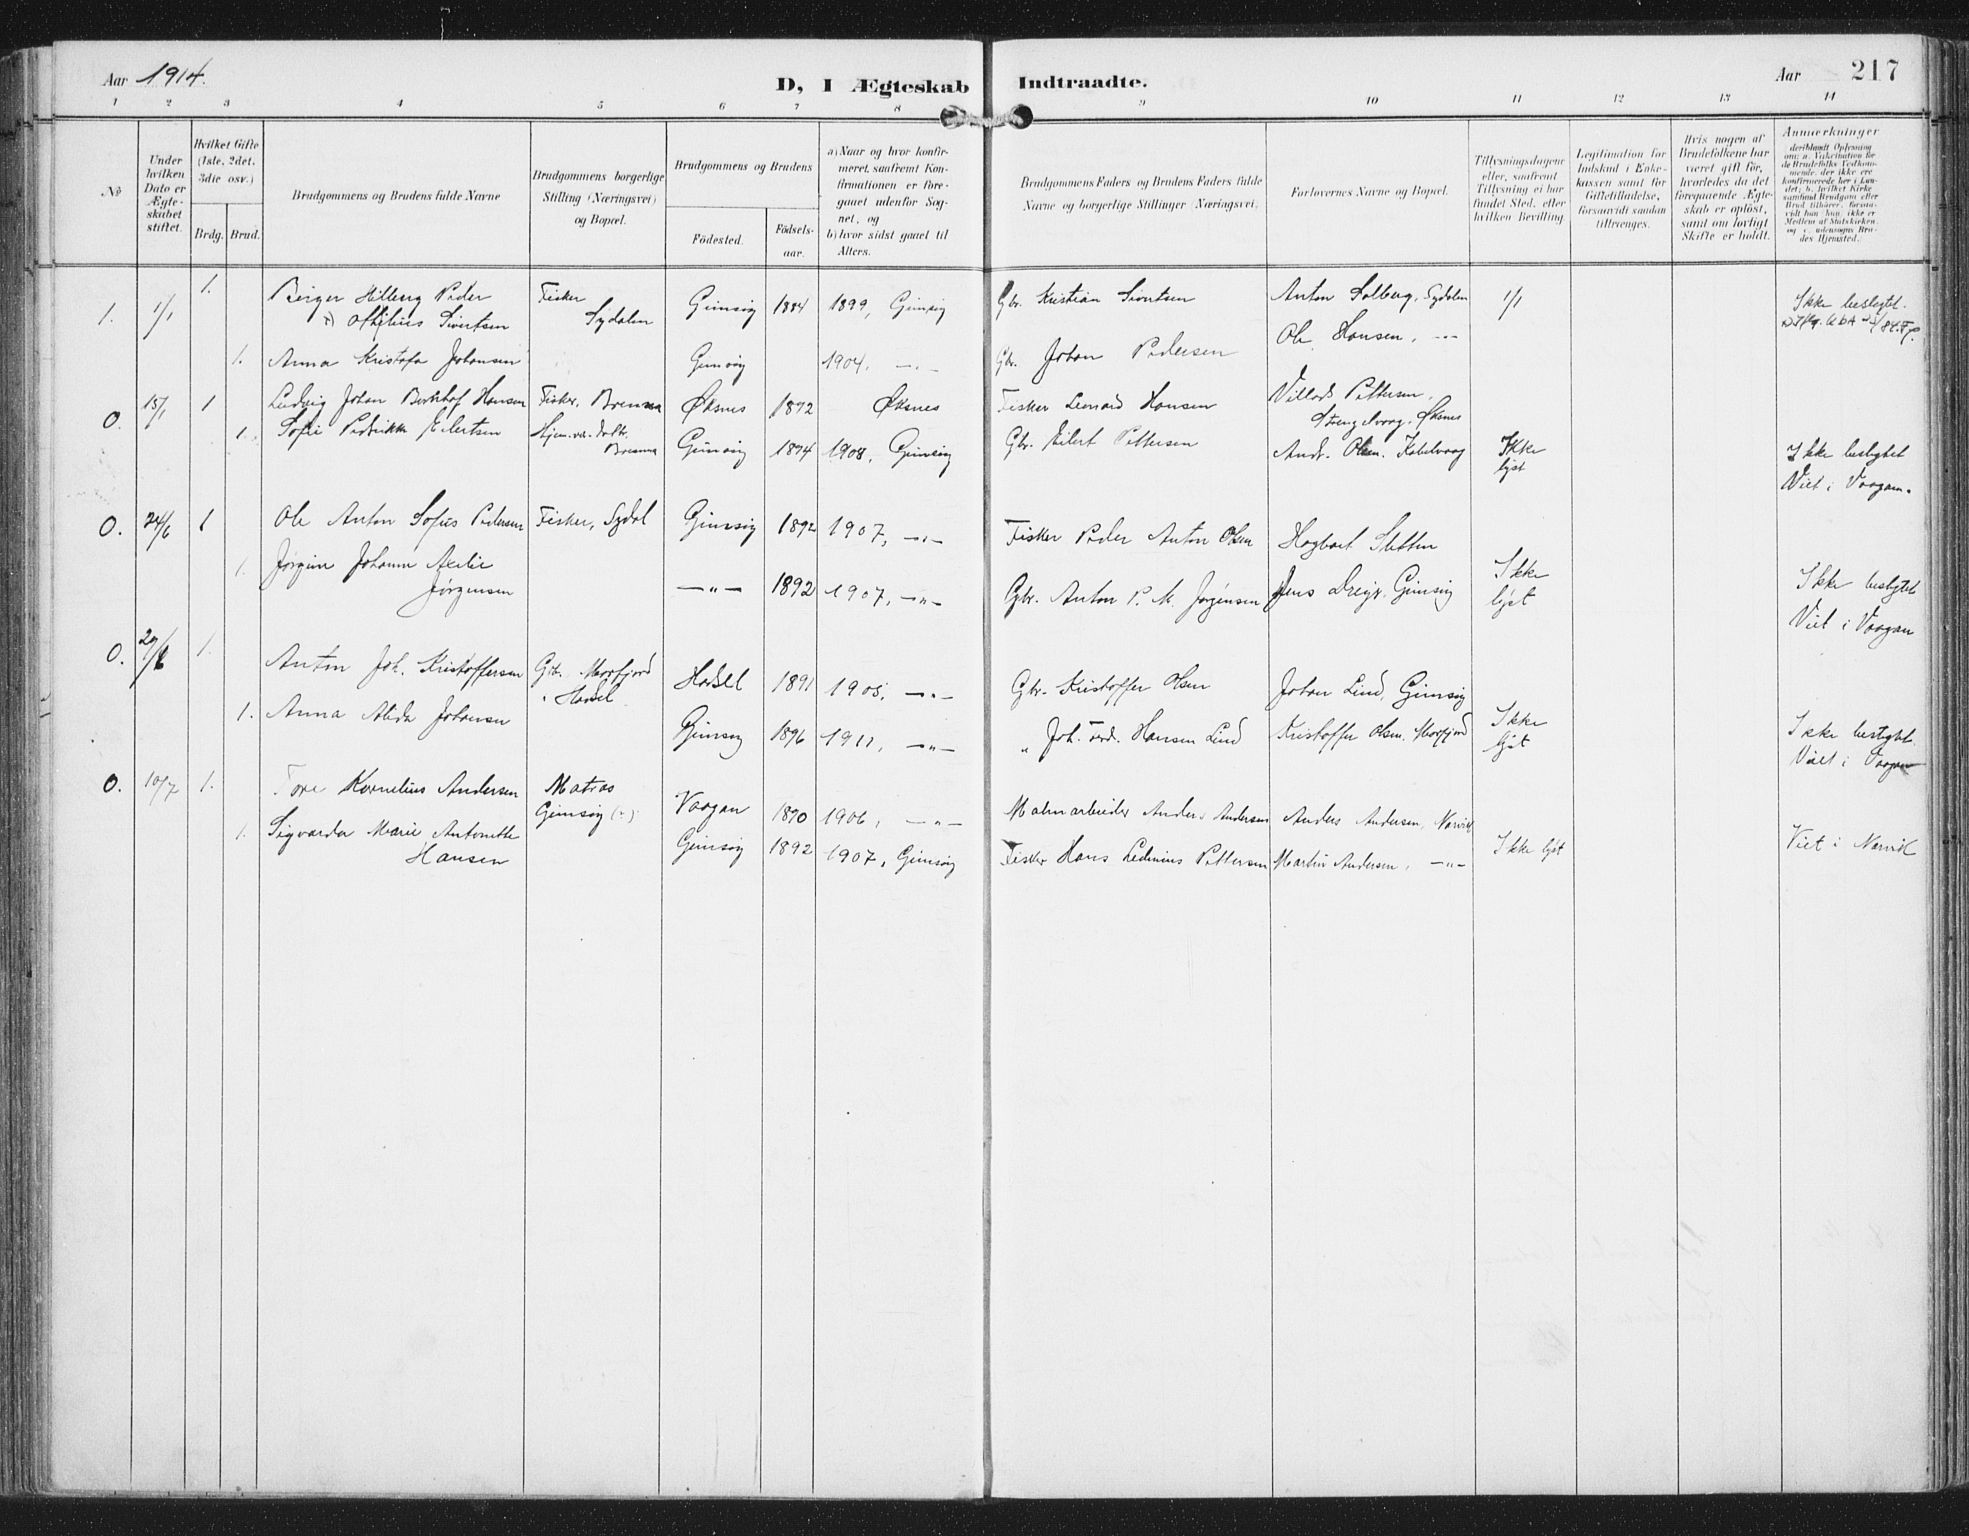 Aar 1914.
D, I Ægteskab Indtraadte.
Aar 217
1 2 3 4 5 6 7 8 9 10 11 12 13 14
No
Under hvilken Dato er Ægteskabet stiftet.
Hvilket Gifte (1ste, 2det, 3die osv.)
Brdg. Brud.
Brudgommens og Brudens fulde Navne
Brudgommens borgerlige Stilling (Næringsvei) og Bopæl.
Brudgommens og Brudens
Födested.
Födselsaar.
a) Naar og hvor konfirmeret, saafremt Konfirmationen er foregaaet udenfor Sognet, og
b) hvor sidst gaaet til Alters.
Brudgommens Faders og Brudens Faders fulde Navne og borgerlige Stillinger (Næringsvei)
Forlovernes Navne og Bopæl.
Tillysningsdagene eller, saafremt Tillysning ei har fundet Sted, efter hvilken Bevilling.
Legitimation for Indskud i Enkekassen samt for Giftetilladelse, forsaavidt saadan tiltrænges.
Hvis nogen af Brudefolkene har været gift för, hvorledes da det foregaaende Ægteskab er oplöst, samt om lovligt Skifte er holdt.
Anmærkninger
deriblandt Oplysning om: a. Vakcination for de Brudefolks Vedkommende, der ikke ere konfirmerede her i Landet; b. hvilket Kirkesamfund Brudgom eller Brud tilhører, forsaavidt han/hun ikke er Medlem af Statskirken, og c. udensogns Brudes Hjemsted.
1. 1/1 1. Birger Hilberg Peder Fisker Gimsøy 1884 1899, Gimsøy Gbr. Kristian Sivertsen Anton Solberg, Sydalen 1/1 Ikke beslegtet.
Othilius Sivertsen Sydalen Ole Hansen, -"-
1. Anna Kristofa Johansen Gimsøy 1904, -"- Gbr. Johan Pedersen
O. 15/1 1 Ludvig Johan Berthof Hansen Fisker, Brenna Øksnes 1892 Øksnes Fisker Leonard Hansen Villads Pettersen,
Strengelvaag, Øksnes
1. Sofie Pedrikke Eilertsen Hjem.vær. datter Brenna Gimsøy 1894 1908, Gimsøy Gbr. Eilert Pettersen Andr. Olsen, Kabelvaag Ikke lyst Ikke beslegtet
Viet i Vaagan.
O. 24/6 1 Ole Anton Sofus Pedersen Fisker, Sydal Gimsøy 1892 1907, -"- Fisker Peder Anton Olsen Hagbart Sletten
1. Jørgine Johanne Aelie -"- 1892 1907, -"- Gbr. Anton P. M. Jørgensen Jens Dreyer, Gimsøy Ikke lyst Ikke beslegtet
Jørgensen Viet i Vaagan
O. 29/6 1. Anton Joh. Kristoffersen Gbr. Morfjord i Hadsel Hadsel 1891 1905, -"- Gbr. Kristoffer Olsen Johan Lind, Gimsøy
1. Anna Alida Johansen Gimsøy 1896 1911, -"- " Joh. Ferd. Hansen Lind Kristoffer Olsen, Morfjord Ikke lyst Ikke beslegtet.
Viet i Vaagan
O. 10/7 1. Tore Kornelius Andersen Matros Vaagan 1890 1906, -"- Malmarbeider Anders Andersen Anders Andersen, Narvik
Gimsøy
1. Sigvarda Marie Antonette Gimsøy 1892 1907, Gimsøy Fisker Hans Ledinius Pettersen Martin Andersen, -"- Ikke lyst Viet i Narvik
Hansen